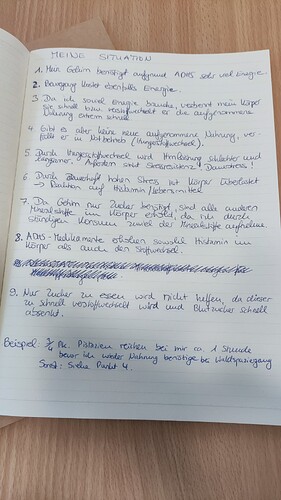 MEINE SITUATION
1. Mein Gehirn benötigt aufgrund ADHS sehr viel Energie.
2. Bewegung kostet ebenfalls Energie.
3. Da ich soviel Energie brauche, verbrennt mein Körper
sie schnell bzw. verstoffwechselt er die aufgenommene
Nahrung extrem schnell
4. Gibt es aber keine neue aufgenommene Nahrung, ver-
fällt er in Notbetrieb (Hungerstoffwechsel).
5. Durch Hungerstoffwechsel wird Hirnleistung schlechter und
langsamer. Außerdem sinkt Stressresistenz. Dauerstress!
6. Durch dauerhaft hohen Stress ist Körper überlastet
→ Reaktion auf Histamin/Lebensmittel
7. Da Gehirn nur Zucker benötigt, sind alle anderen
Mineralstoffe im Körper erhöht, da ich durch
ständigen Konsum zuviel der Mineralstoffe aufnehme
8. ADHS-Medikamente erhöhen sowohl Histamin im
Körper als auch den Stoffwechsel.
9. Nur Zucker zu essen wird nicht helfen, da dieser
zu schnell verstoffwechselt wird und Blutzucker schnell
absenkt.
Beispiel: Pk. Pistazien reichen bei mir ca. 1 Stunde
bevor ich wieder Nahrung benötige bei Waldspaziergang
Sonst: Siehe Punkt 4.